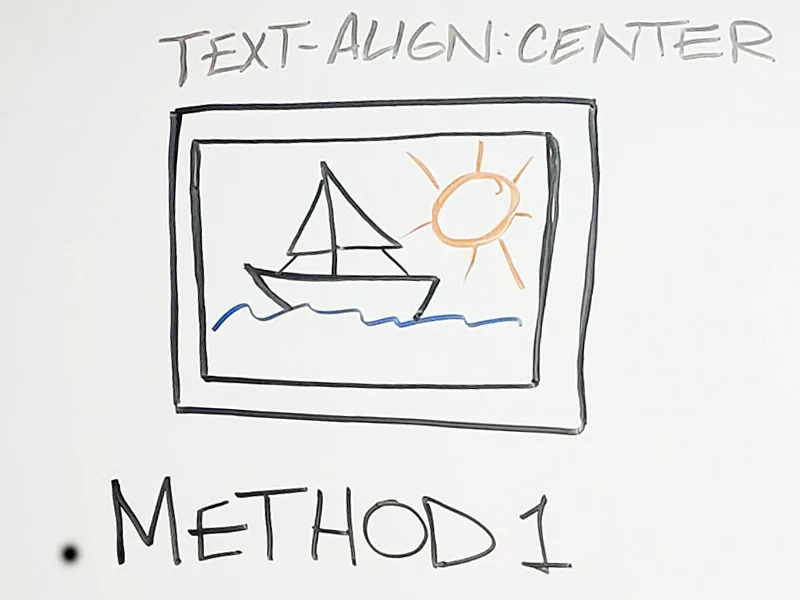 TEXT-ALIGN:CENTER
METHOD 1